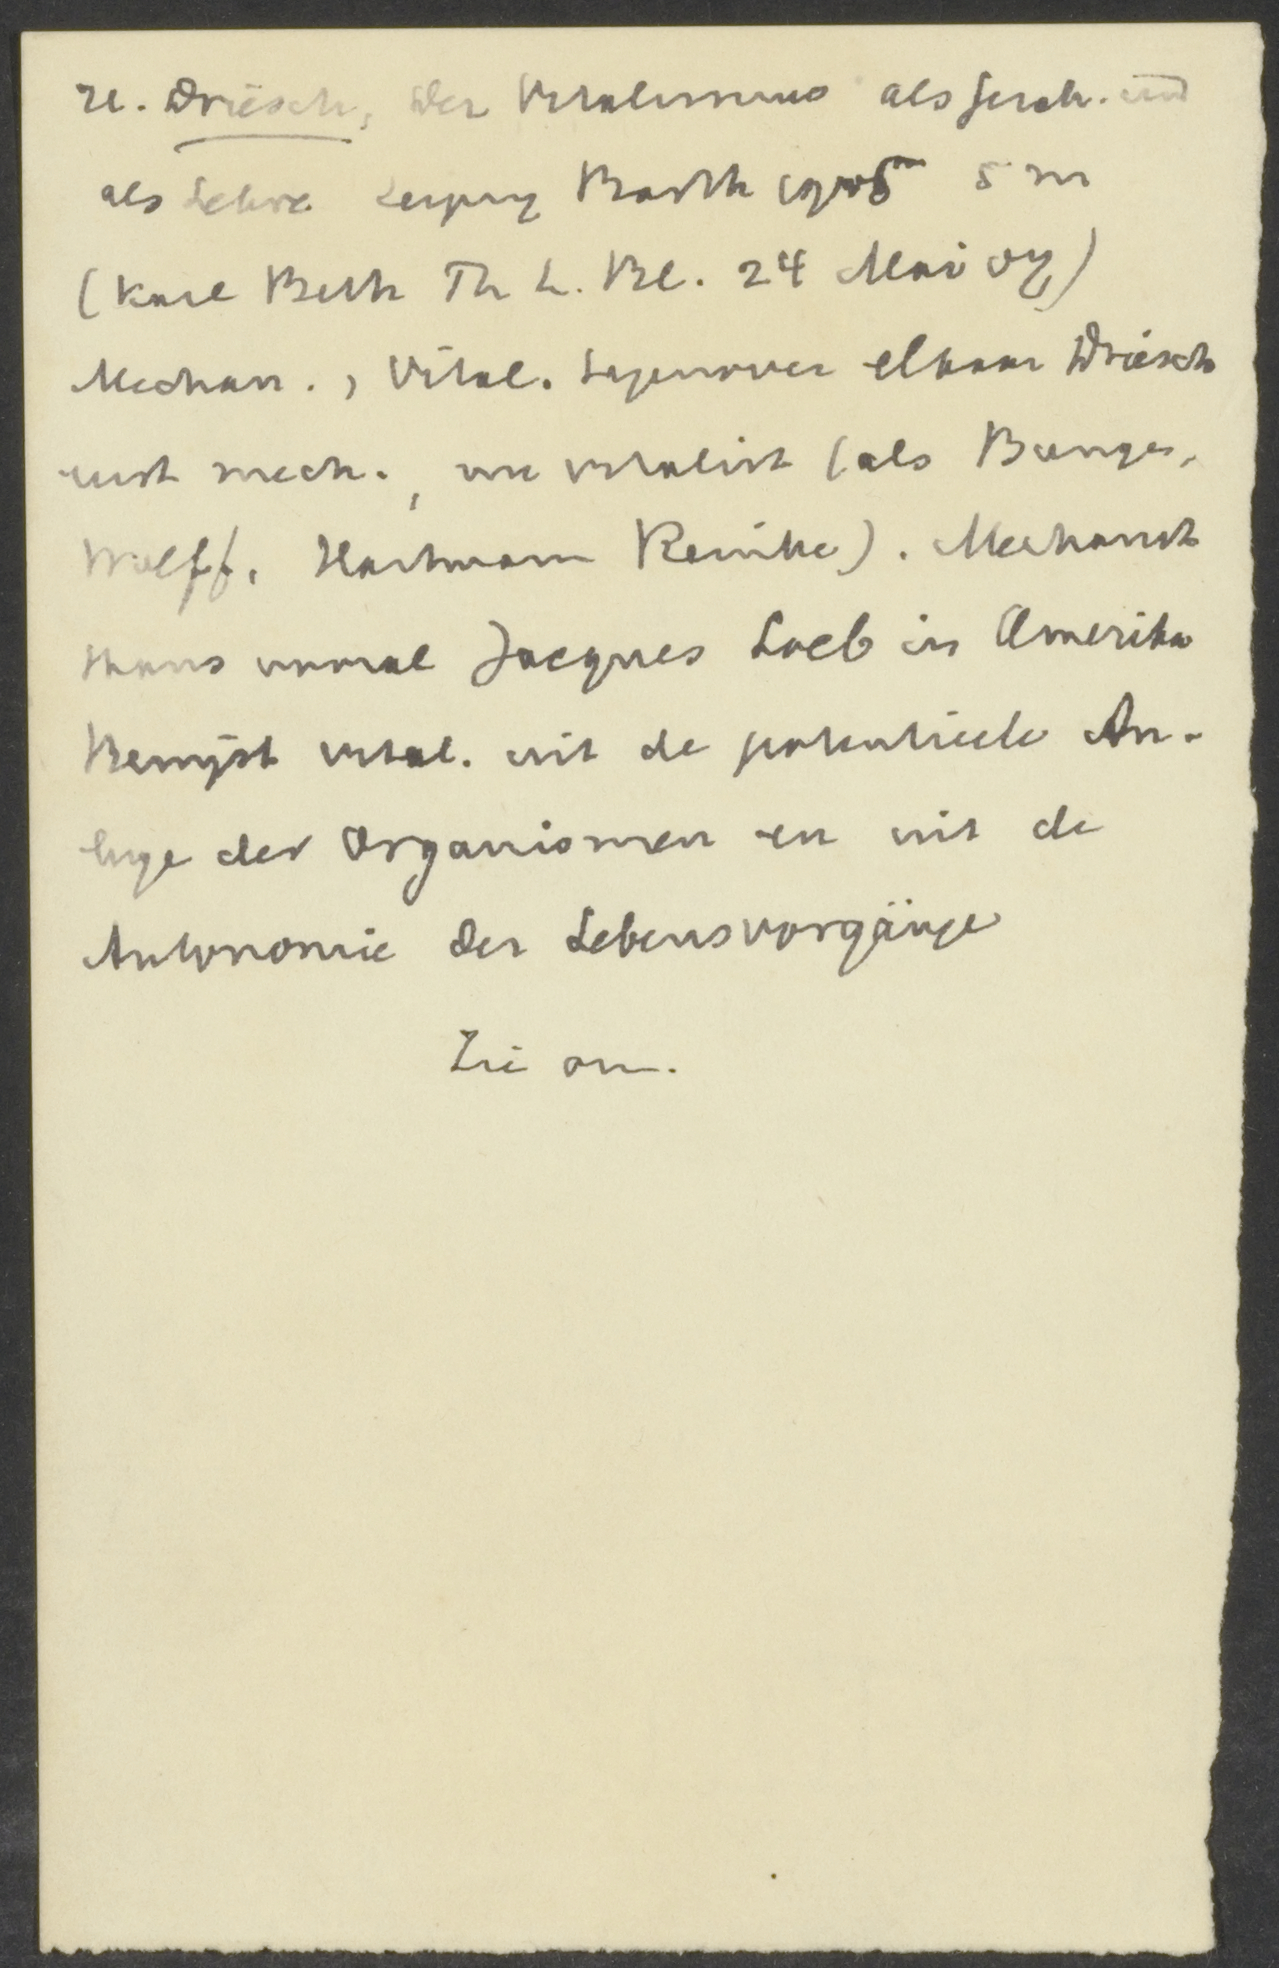 H. Driesch, Der Vitalismus als Gesch. und
als Lehre Leipzig Barth 1905 5 M
(Karl Beth Th L. Bl. 24 Mai 07)
Mechan., Vital. tegenover elkaar Driesch
eerst mech., nu vitalist (als Bunge,
Wolff, Hartmann Reinke). Mechanist
thans vooral Jacques Loeb in Amerika
Bewijst vital. uit de potentieele An-
lage der Organismen en uit de
Autonomie der Lebensvorgänge
Zie om.